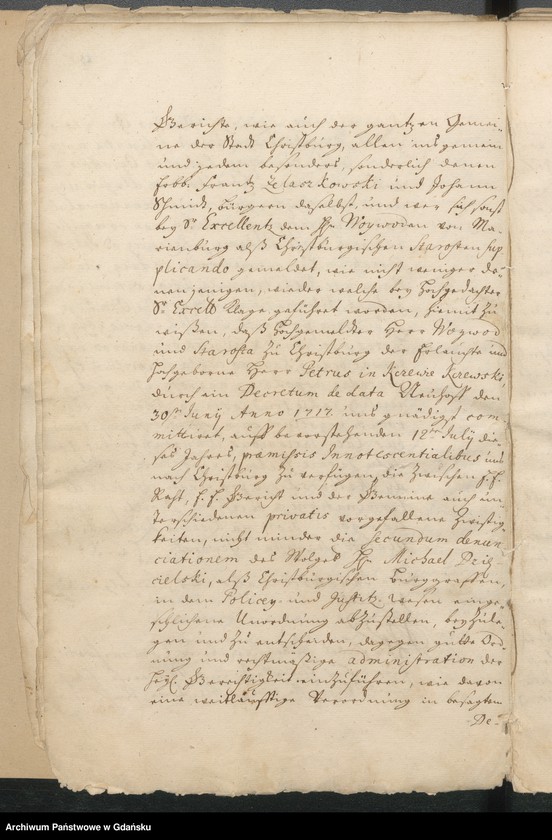 Gerichte, wie auch der gantzen Gemei-
ne der Stadt Christburg, allen ins gemein
und jedem besonders, sonderlich denen
Frantz Zelaszkowski und Johann
Schmidt, Bürgern daselbst, und wer sich sonst
bey Sr Excellentz dem Hn Woywoden von Ma-
rienburg alß Christburgischen Starosten sup
plicando gemeldet, wie nicht weniger de-
nen jenigen, wieder welche bey Hochgedachter
Sr Excell Klage geführet worden, hiemit zu
wißen, daß Hochgemeldter Herr Woywod
und Starosta zu Christburg der Erlauchte und
Hochgeborne Herr Petrus in Kczewo Kczewski,
durch ein Decretum de data Neuhoff den
30ten Juny Anno 1717 uns gnädigst com-
mittiret, auff bevorstehenden 12ten July die-
ses Jahres, præmissis Innotescentialibus uns
nach Christburg zu verfügen, die zwischen E. E.
Raht, E. E. Gericht und der Gemeine auch un-
terschiedenen privatis vorgefallene Zwistig-
keiten, nicht minder die secundum denun-
ciationem des Wolged Hn Michael Dzię-
cielski, alß Christburgischen Burggraffen,
in dem Policey- und Justitz-wesen einge-
schlichene Unordnung abzustellen, beyzule-
gen und zu entscheiden, dagegen gutte Ord-
nung und rechtmäßige administration der
Heyl. Gerechtigkeit einzuführen, wie davon
eine weitläufftige Verordnung in besagtem
De-
Archiwum Państwowe w Gdańsku